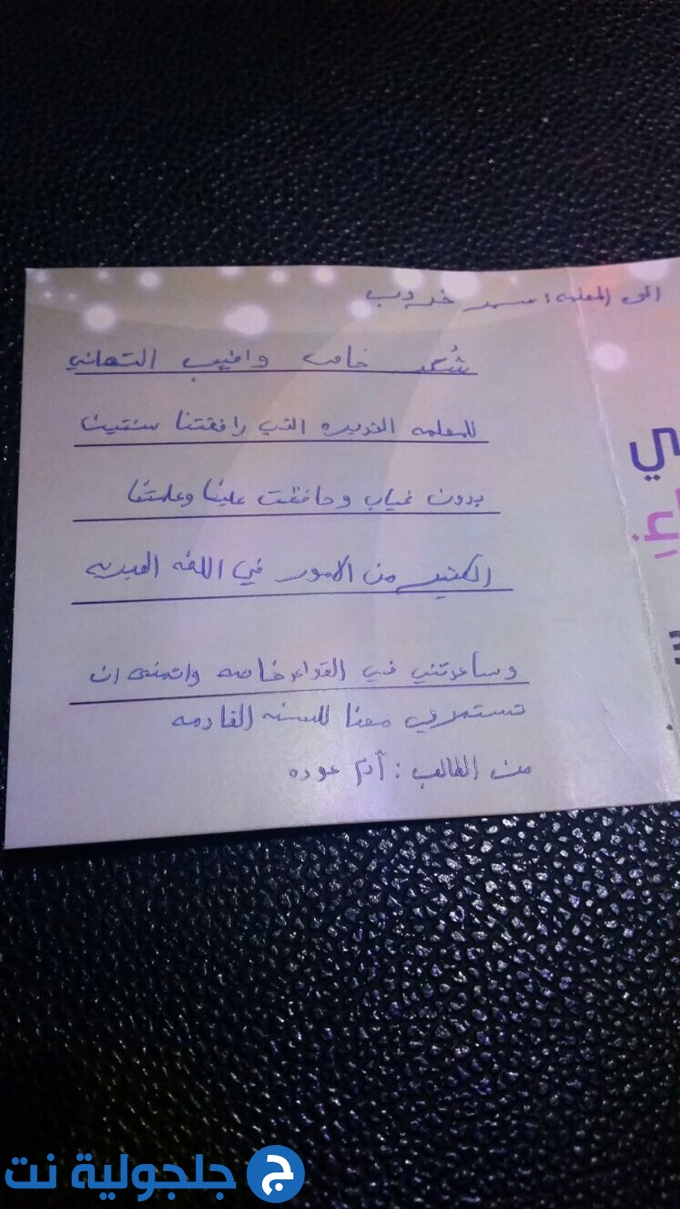 الى المعلمه: سمر خروب
شُكر خاص واطيب التهاني
للمعلمه القديره التي رافقتنا سنتين
بدون غياب وحافظت علينا وعلمتنا
الكثير من الامور في اللغه العبريه
وساعدتني في القواعد خاصه واتمنى ان
تستمري معنا للسنه القادمه
من الطالب: آدم عوده
جلجولية نت